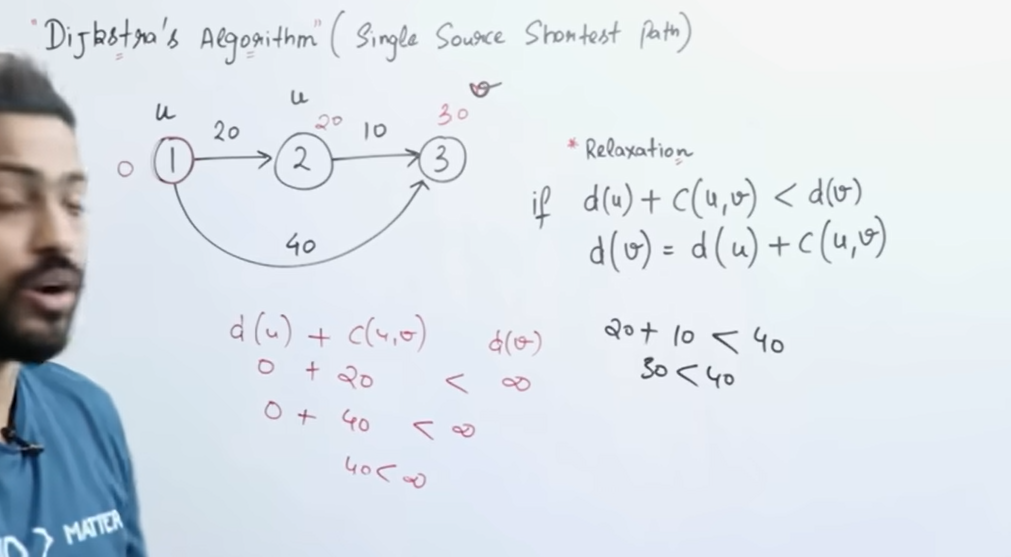 "Dijkstra's Algorithm" (Single Source Shortest Path)
u u v
20 20 10 30
0 1 2 3
40
* Relaxation
if d(u) + c(u,v) < d(v)
d(v) = d(u) + c(u,v)
d(u) + c(u,v) d(v)
0 + 20 < ∞
0 + 40 < ∞
40 < ∞
20 + 10 < 40
30 < 40
MATTER